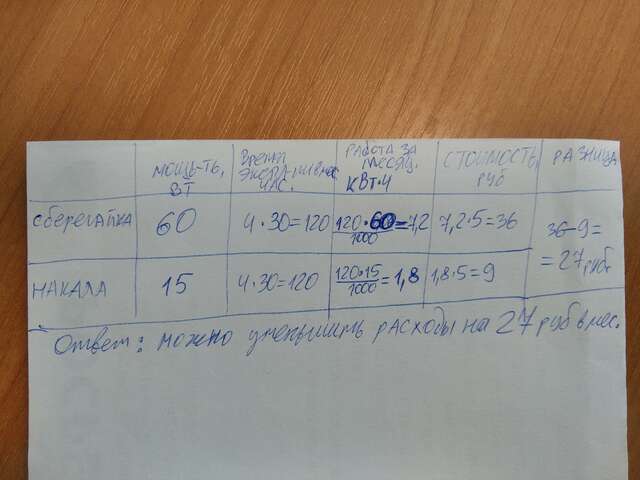 МОЩЬ-ТЬ, ВТ
ВРЕМЯ ЧАС.
РАБОТА ЗА МЕСЯЦ, КВТ·Ч
СТОИМОСТЬ, РУБ
РАЗНИЦА
СБЕРЕГАЙКА 60 4·30=120 120·60/1000=7,2 7,2·5=36
36-9=
=27 руб.
НАКАЛА 15 4·30=120 120·15/1000=1,8 1,8·5=9
Ответ: можно уменьшить расходы на 27 руб в мес.